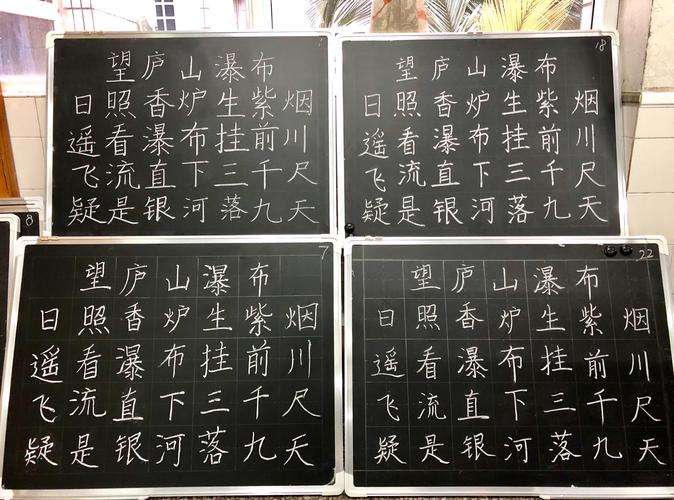 望庐山瀑布
日照香炉生紫烟
遥看瀑布挂前川
飞流直下三千尺
疑是银河落九天
18
望庐山瀑布
日照香炉生紫烟
遥看瀑布挂前川
飞流直下三千尺
疑是银河落九天
8
7
望庐山瀑布
日照香炉生紫烟
遥看瀑布挂前川
飞流直下三千尺
疑是银河落九天
22
望庐山瀑布
日照香炉生紫烟
遥看瀑布挂前川
飞流直下三千尺
疑是银河落九天